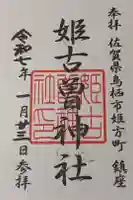 奉拝 佐賀県鳥栖市姫方町 鎮座
姫古曽神社
令和七年 一月廿三日参拝